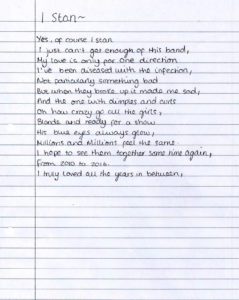 I Stan~
Yes, of course I stan
I just can't get enough of this band,
My love is only for one direction
I've been diseased with the infection,
Not particularly something bad
But when they broke up it made me sad,
And the one with dimples and curls
Oh how crazy go all the girls,
Blonde and ready for a show
His blue eyes always glow,
Millions and Millions feel the same
I hope to see them together some time again,
From 2010 to 2016
I truly loved all the years in between,